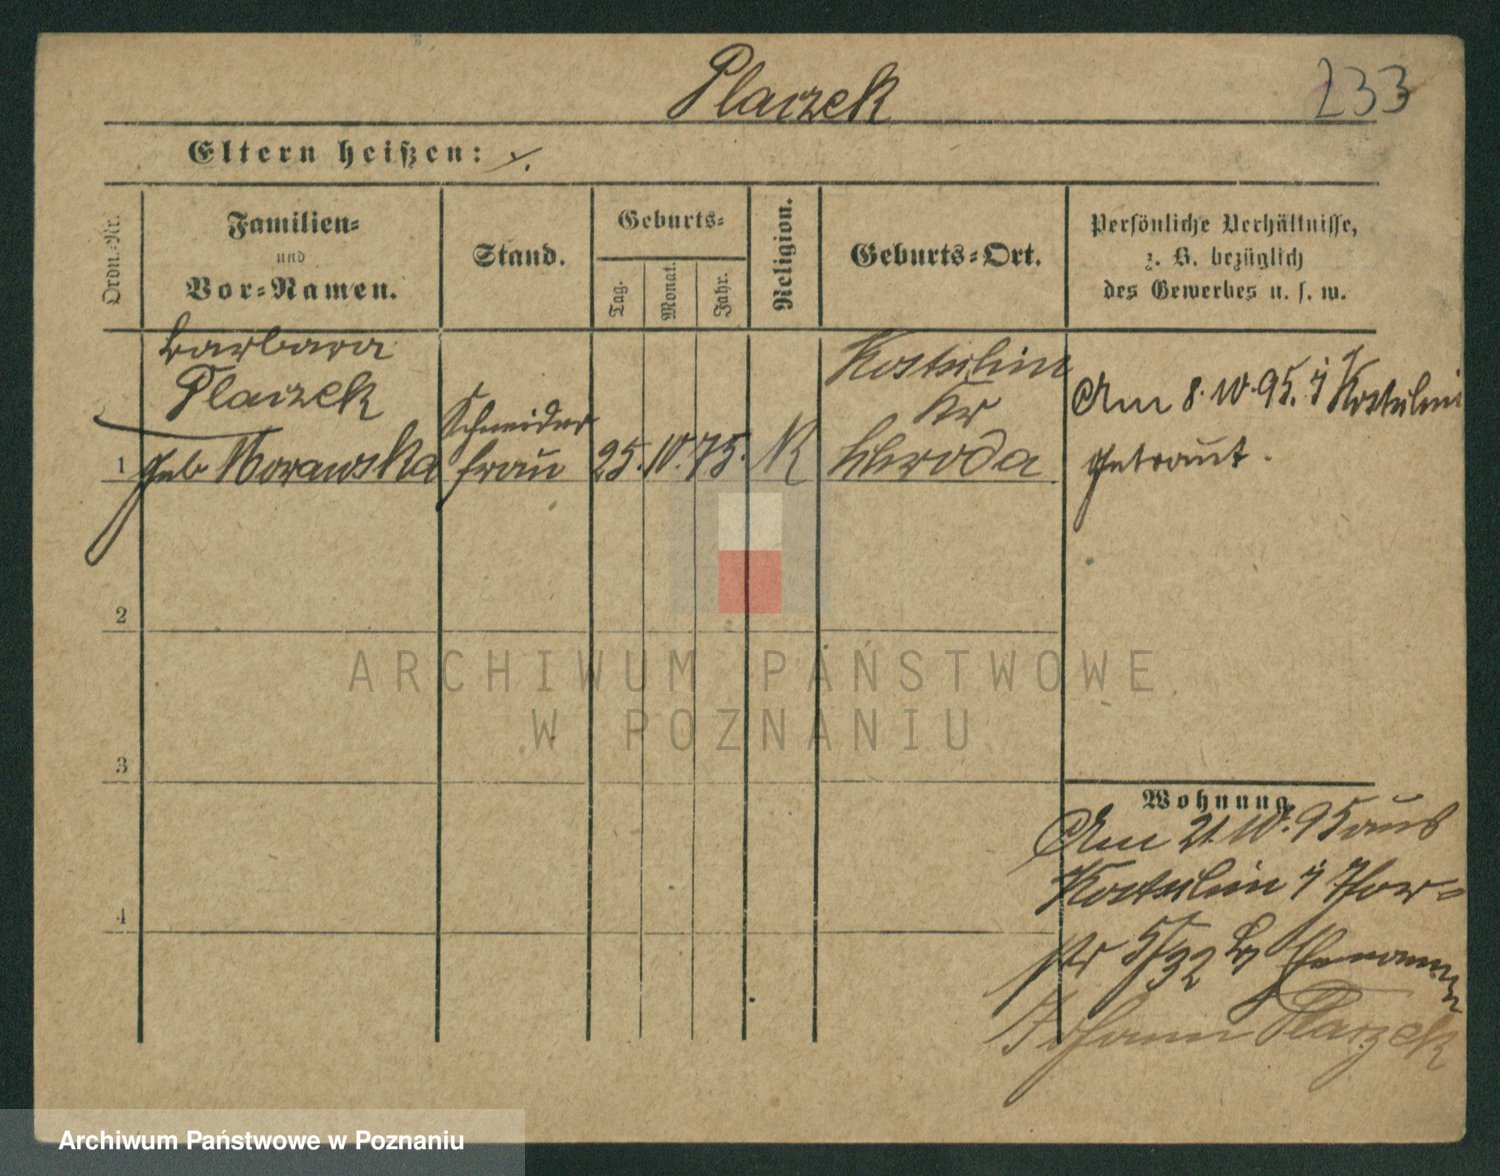 Placzek
233
Eltern heißen: ⁒
Ordn.-Nr.
Familien-
und
Vor-Namen.
Stand.
Geburts-
Tag.
Monat.
Jahr.
Religion.
Geburts-Ort.
Persönliche Verhältnisse,
z. B. bezüglich
des Gewerbes u. s. w.
Barbara
Placzek
1 geb Morawska
Schneider
frau
25. 10. 75.
K
Kostschin
Kr
Schroda
Am 8.10.95. i Kostschin
getraut.
2
3
4
Wohnung
Am 21.10.95 aus
Kostschin i
5/32 b Ehemann
Johann Placzek
ARCHIWUM PAŃSTWOWE
W POZNANIU
Archiwum Państwowe w Poznaniu